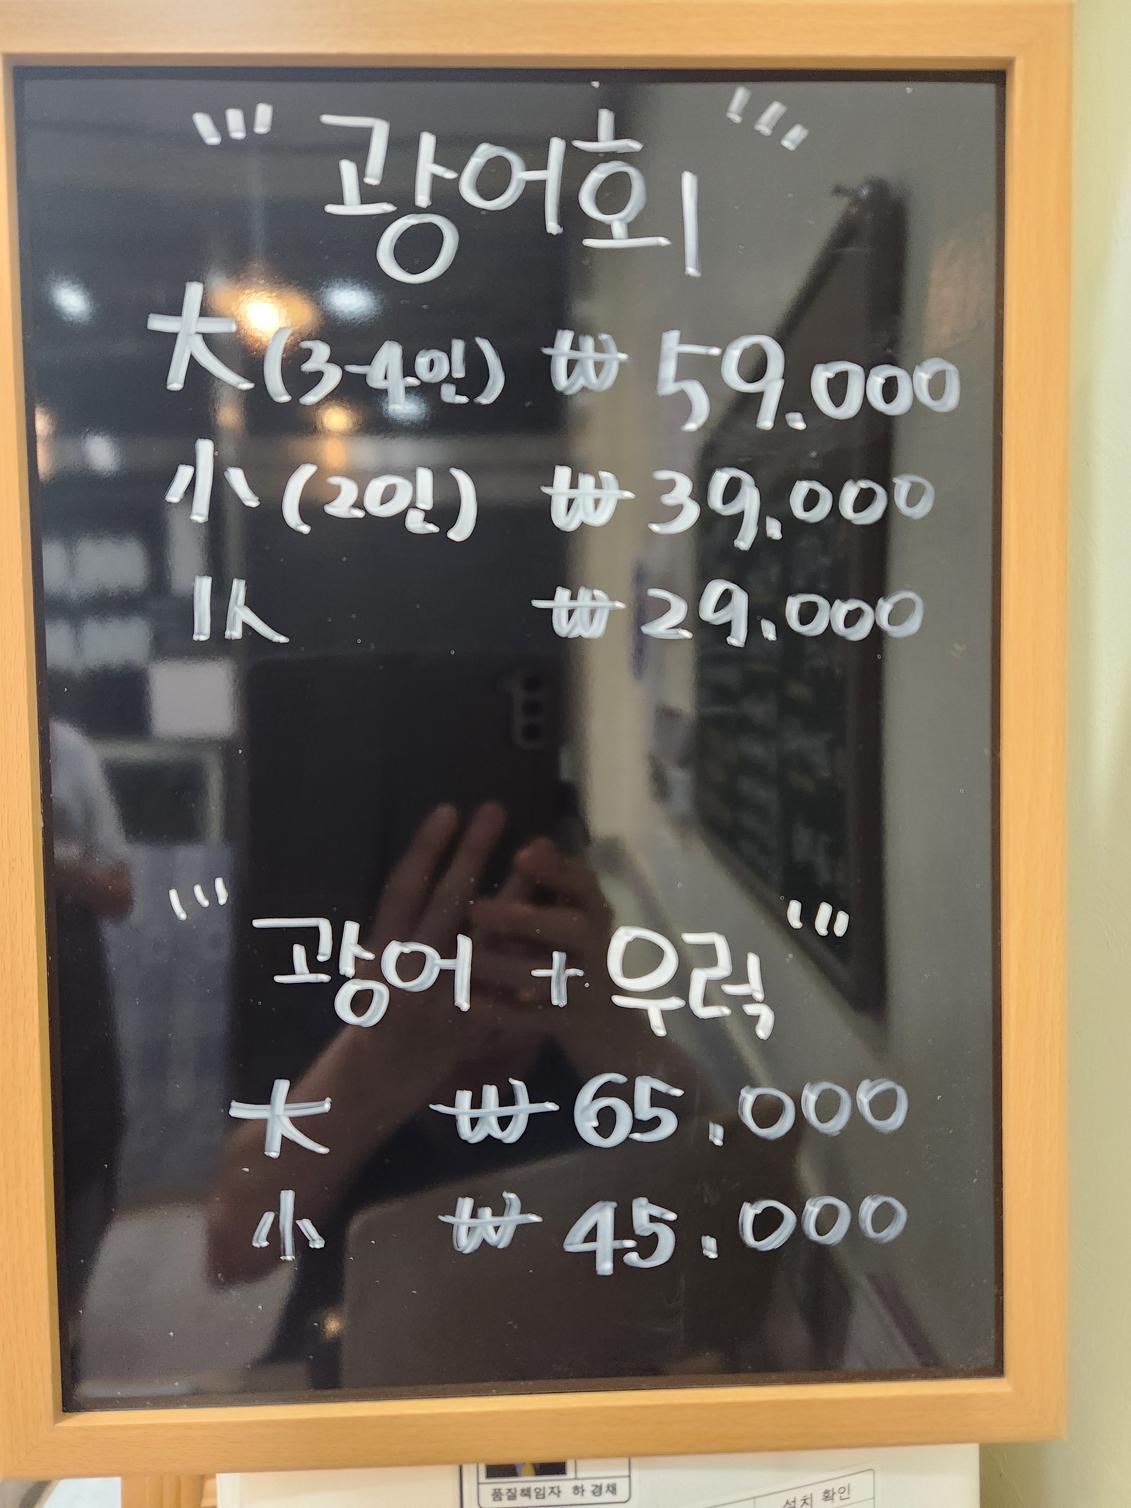 광어회
大(3-4인) ₩ 59.000
小(2인) ₩ 39.000
₩ 29.000
광어 + 우럭
大 ₩ 65.000
小 ₩ 45.000
품질책임자 하경채
설치 확인